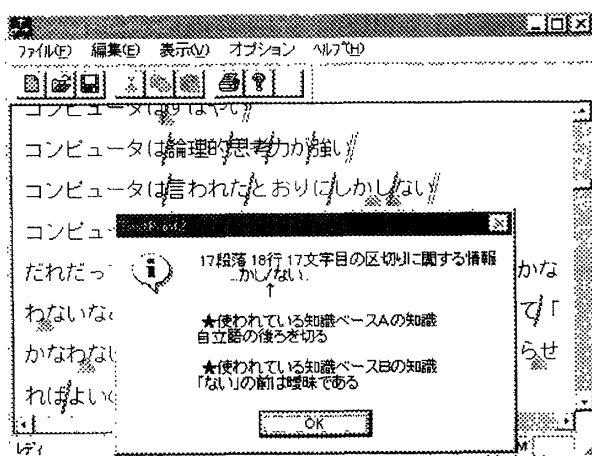 ファイル(F) 編集(E) 表示(V) オプション ヘルプ(H)
コンピュータはすばやい//
コンピュータは/論理的/思考/力が/強い//
コンピュータは/言われた/とおりに/しかし/ない//
コンピュー
だれだっ
かな
わないな
て/「
かなわない
らせ
れば/よい
17段落 18行 17文字目の区切りに関する情報
...かし/ない...
↑
★使われている知識ベースAの知識
自立語の後ろを切る
★使われている知識ベースBの知識
「ない」の前は曖昧である
OK
レディ
M